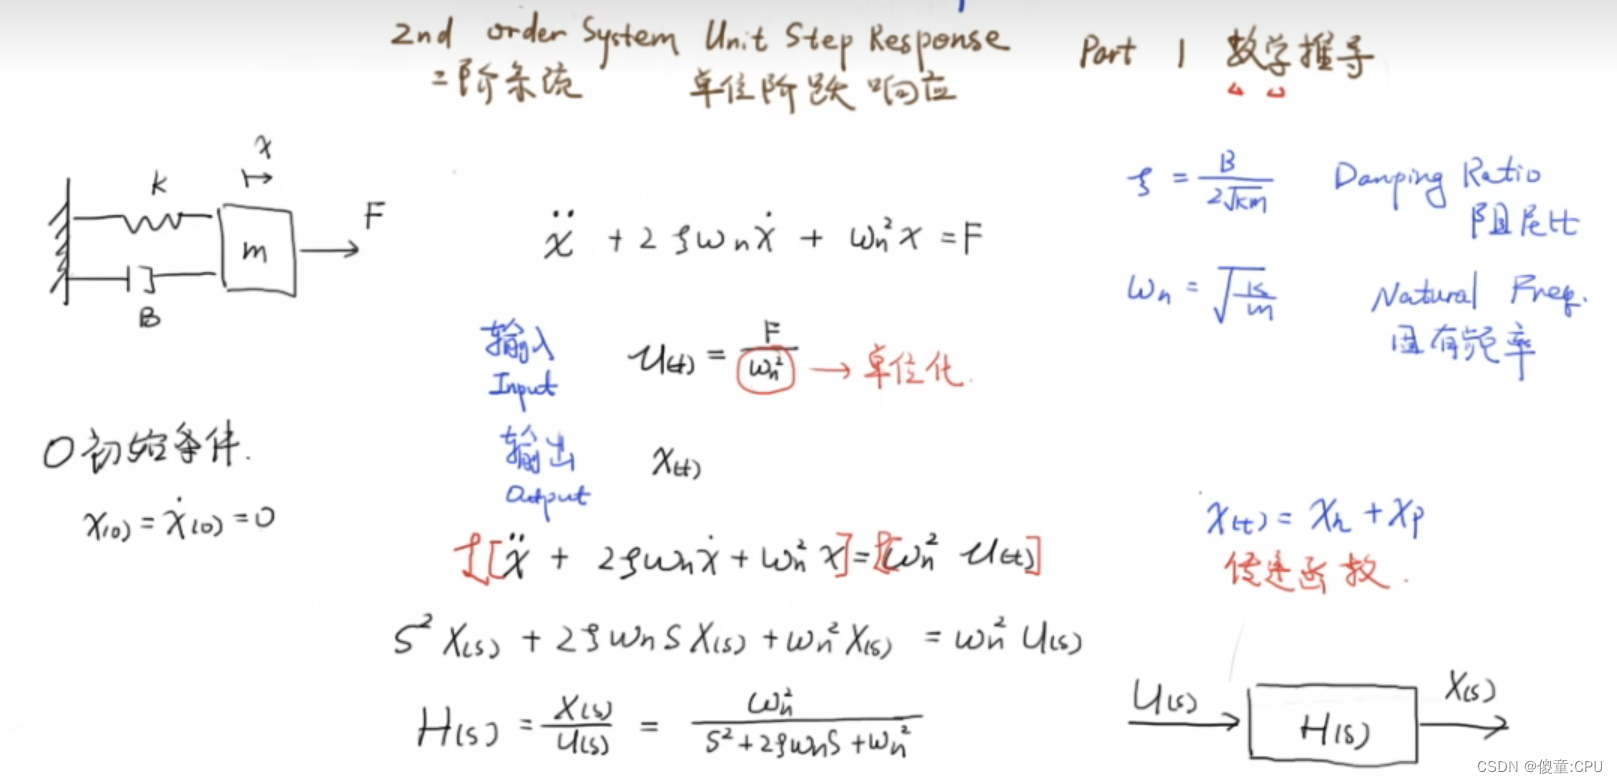 2nd order System Unit Step Response Part 1 数学推导
二阶系统 单位阶跃响应
x
k
F
m
B
ẍ + 2ζωₙẋ + ωₙ²x = F
ζ = B / 2√km Damping Ratio
阻尼比
ωₙ = √k/m Natural Freq.
固有频率
输入 u(t) = F / ωₙ² → 单位化.
Input
0初始条件.
x(0) = ẋ(0) = 0
输出 x(t)
Output
x(t) = xₕ + xₚ
传递函数.
ℒ[ẍ + 2ζωₙẋ + ωₙ²x] = ℒ[ωₙ² u(t)]
S² X(s) + 2ζωₙS X(s) + ωₙ² X(s) = ωₙ² U(s)
H(s) = X(s) / U(s) = ωₙ² / S² + 2ζωₙS + ωₙ²
U(s) H(s) X(s)
CSDN @傻童:CPU